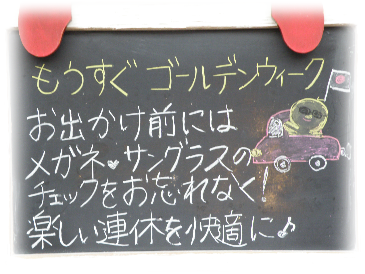 もうすぐ ゴールデンウィーク
お出かけ前には
メガネ♥サングラスの
チェックをお忘れなく!
楽しい連休を快適に♪